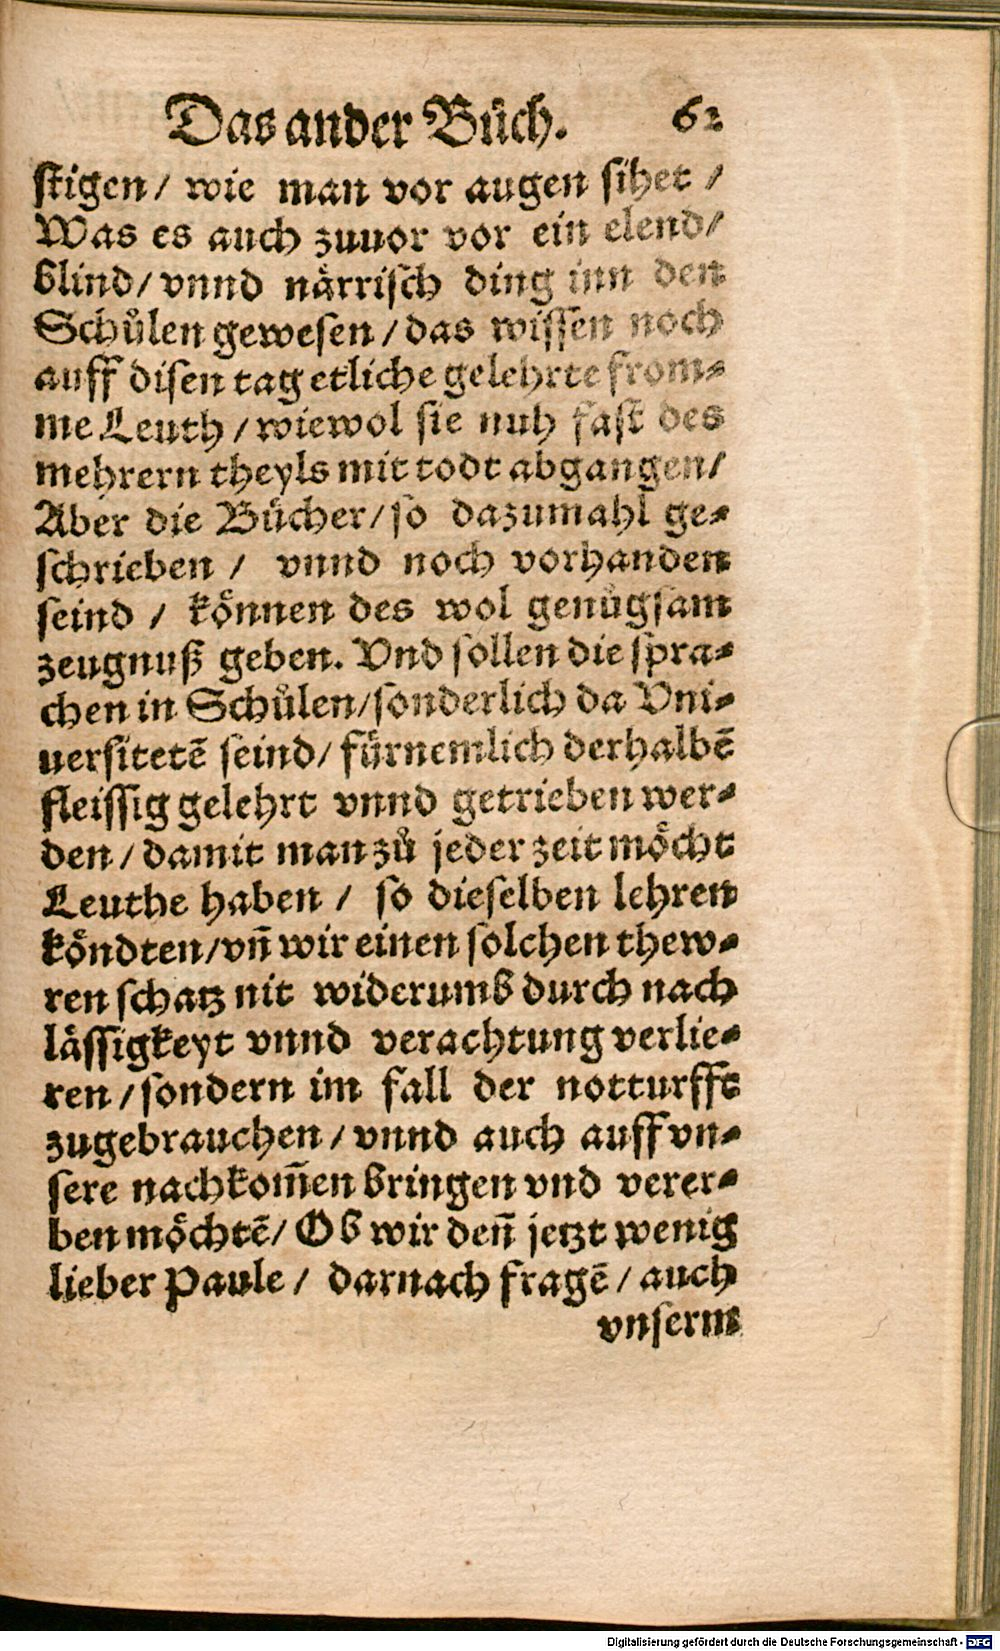 Das ander Bůch. 62
stigen / wie man vor augen sihet /
Was es auch zuuor vor ein elend /
blind / vnnd närrisch ding inn den
Schůlen gewesen / das wissen noch
auff disen tag etliche gelehrte from⸗
me Leuth / wiewol sie nuh fast des
mehrern theyls mit todt abgangen /
Aber die Bücher / so dazumahl ge⸗
schrieben / vnnd noch vorhanden
seind / können des wol genůgsam
zeugnuß geben. Vnd sollen die spra⸗
chen in Schůlen / sonderlich da Vni⸗
uersitetē seind / fürnemlich derhalbē
fleissig gelehrt vnnd getrieben wer⸗
den / damit man zů jeder zeit möcht
Leuthe haben / so dieselben lehren
köndten / vn̄ wir einen solchen thew⸗
ren schatz nit widerumb durch nach
lässigkeyt vnnd verachtung verlie⸗
ren / sondern im fall der notturfft
zugebrauchen / vnnd auch auff vn⸗
sere nachkom̄en bringen vnd verer⸗
ben möchtē / Ob wir den̄ jetzt wenig
lieber Paule / darnach fragē / auch
vnserm
Digitalisierung gefördert durch die Deutsche Forschungsgemeinschaft - DFG